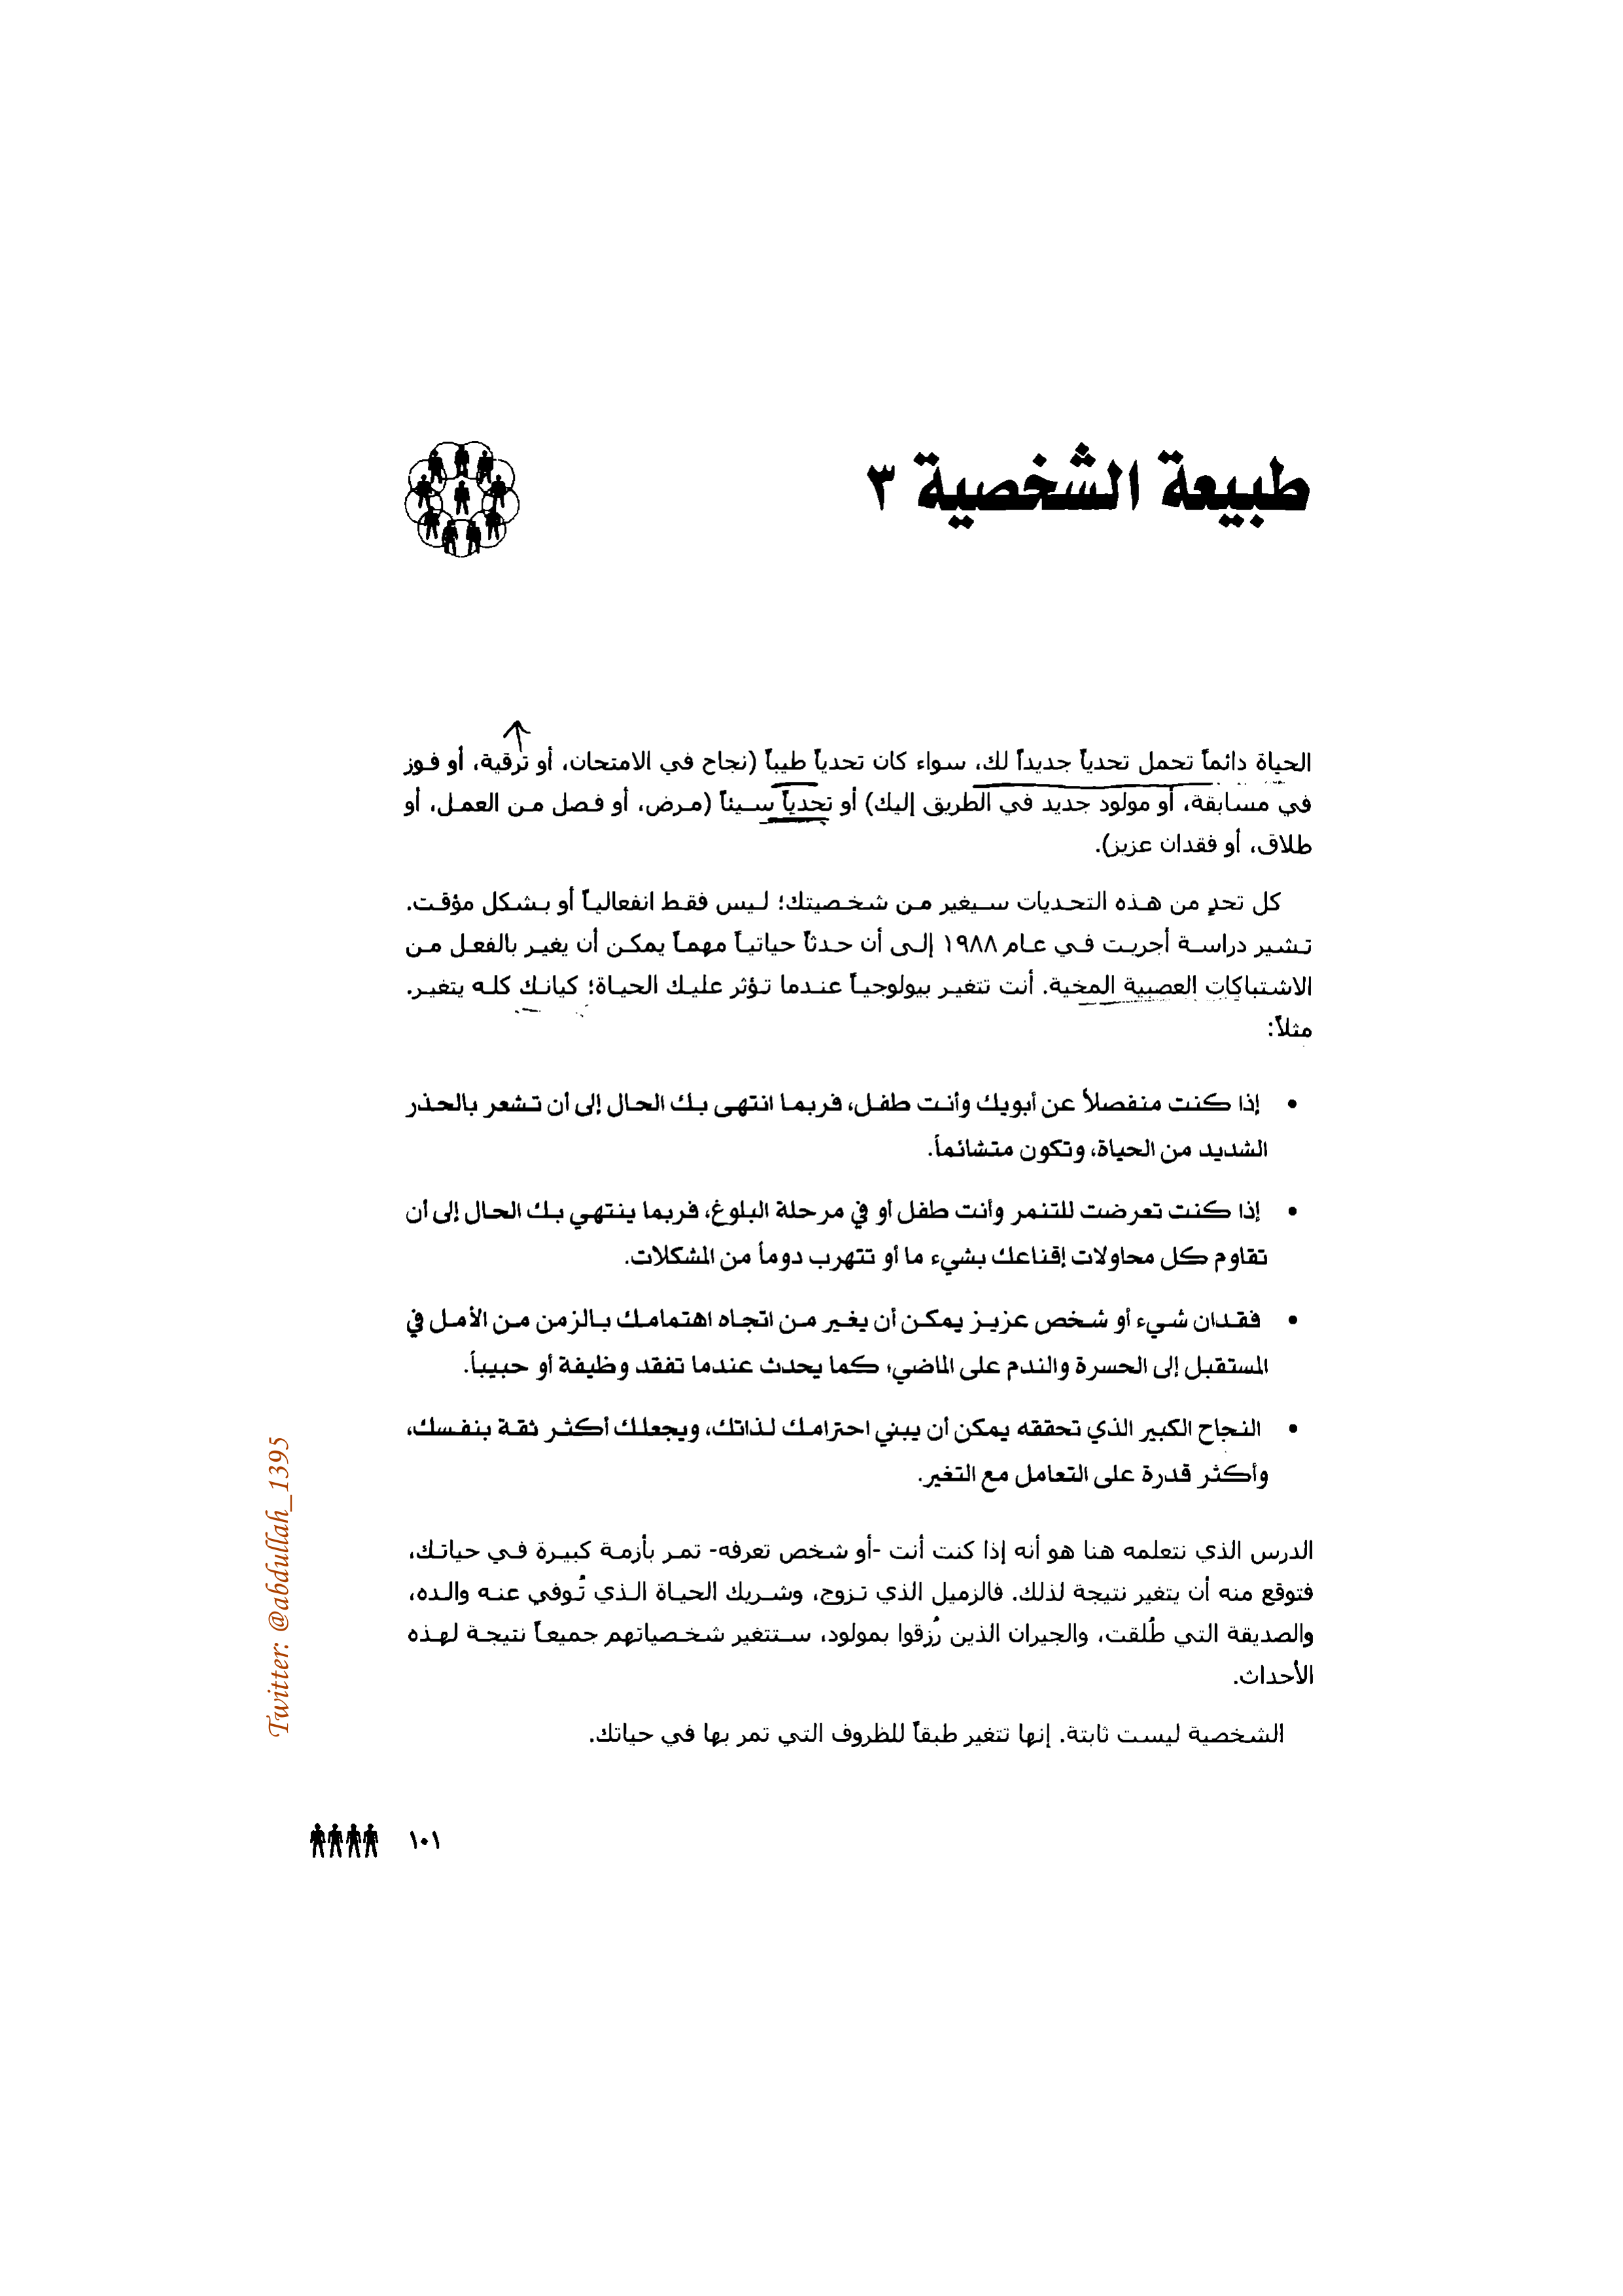 طبيعة الشخصية ٣
الحياة دائماً تحمل تحدياً جديداً لك، سواء كان تحدياً طيباً (نجاح في الامتحان، أو ترقية، أو فوز
في مسابقة، أو مولود جديد في الطريق إليك) أو تحدياً سيئاً (مرض، أو فصل من العمل، أو
طلاق، أو فقدان عزيز).
كل تحدٍ من هذه التحديات سيغير من شخصيتك؛ ليس فقط انفعالياً أو بشكل مؤقت.
تشير دراسة أجريت في عام ١٩٨٨ إلى أن حدثاً حياتياً مهماً يمكن أن يغير بالفعل من
الاشتباكات العصبية المخية. أنت تتغير بيولوجياً عندما تؤثر عليك الحياة؛ كيانك كله يتغير.
مثلاً:
• إذا كنت منفصلاً عن أبويك وأنت طفل، فربما انتهى بك الحال إلى أن تشعر بالحذر
الشديد من الحياة، وتكون متشائماً.
• إذا كنت تعرضت للتنمر وأنت طفل أو في مرحلة البلوغ، فربما ينتهي بك الحال إلى أن
تقاوم كل محاولات إقناعك بشيء ما أو تتهرب دوماً من المشكلات.
• فقدان شيء أو شخص عزيز يمكن أن يغير من اتجاه اهتمامك بالزمن من الأمل في
المستقبل إلى الحسرة والندم على الماضي؛ كما يحدث عندما تفقد وظيفة أو حبيباً.
• النجاح الكبير الذي تحققه يمكن أن يبني احترامك لذاتك، ويجعلك أكثر ثقة بنفسك،
وأكثر قدرة على التعامل مع التغير.
الدرس الذي نتعلمه هنا هو أنه إذا كنت أنت -أو شخص تعرفه- تمر بأزمة كبيرة في حياتك،
فتوقع منه أن يتغير نتيجة لذلك. فالزميل الذي تزوج، وشريك الحياة الذي تُوفي عنه والده،
والصديقة التي طُلقت، والجيران الذين رُزقوا بمولود، ستتغير شخصياتهم جميعاً نتيجة لهذه
الأحداث.
الشخصية ليست ثابتة. إنها تتغير طبقاً للظروف التي تمر بها في حياتك.
Twitter: @abdullah_1395
١٠١